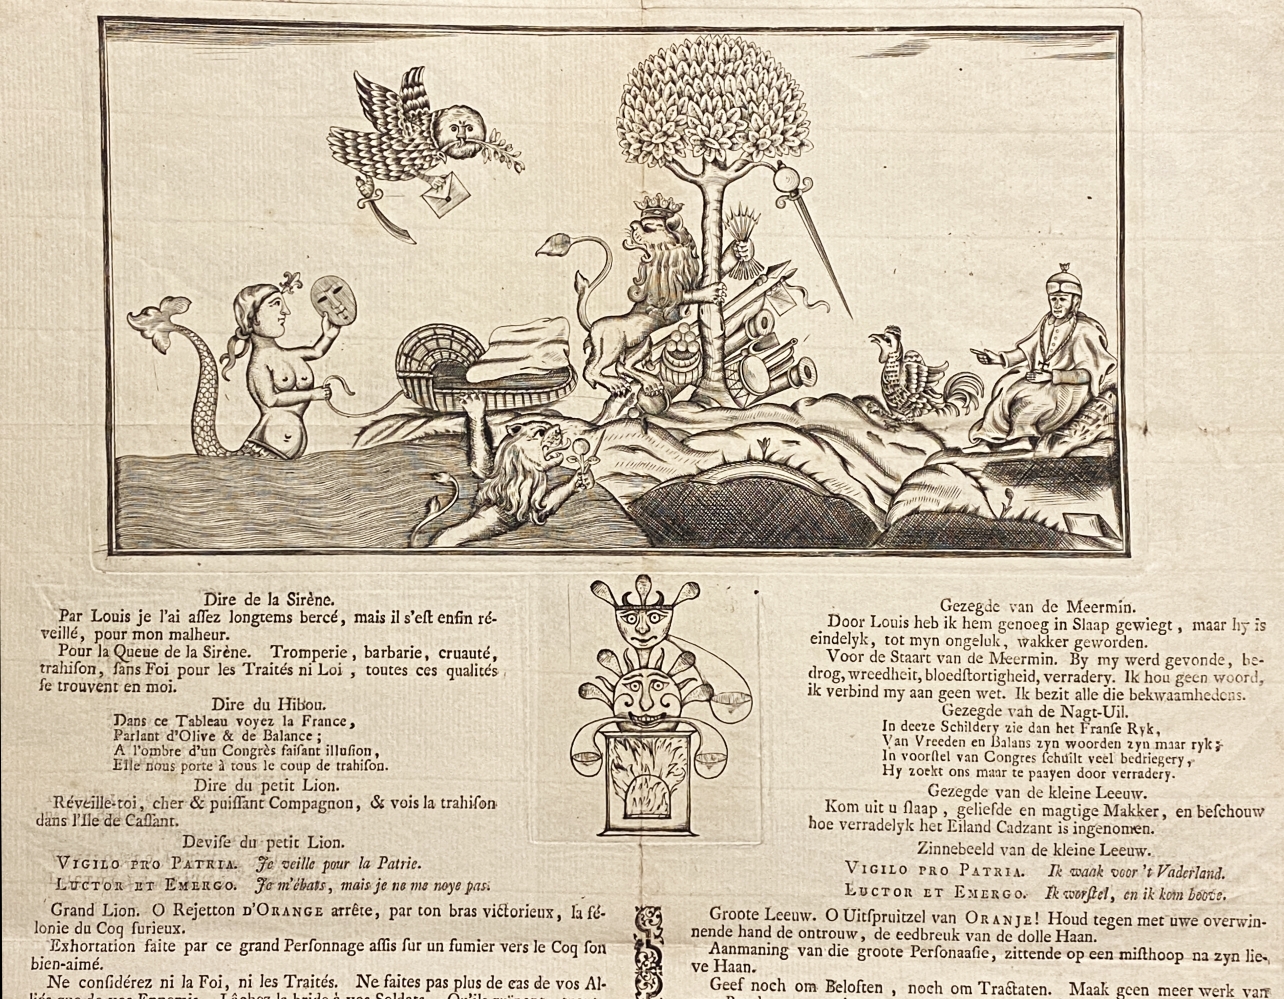 Dire de la Sirène.
Par Louis je l'ai aſſez longtems bercé, mais il s'eſt enfin ré-
veillé, pour mon malheur.
Pour la Queue de la Sirène. Tromperie, barbarie, cruauté,
trahiſon, ſans Foi pour les Traités ni Loi, toutes ces qualités
ſe trouvent en moi.
Dire du Hibou.
Dans ce Tableau voyez la France,
Parlant d'Olive & de Balance;
A l'ombre d'un Congrès faiſant illuſion,
Elle nous porte à tous le coup de trahiſon.
Dire du petit Lion.
Réveille-toi, cher & puiſſant Compagnon, & vois la trahiſon
dans l'Iſle de Caſſant.
Deviſe du petit Lion.
VIGILO PRO PATRIA. Je veille pour la Patrie.
LUCTOR ET EMERGO. Je m'ébats, mais je ne me noye pas.
Grand Lion. O Rejetton D'ORANGE arrête, par ton bras victorieux, la fé-
lonie du Coq furieux.
Exhortation faite par ce grand Perſonnage aſſis ſur un fumier vers le Coq ſon
bien-aimé.
Ne conſidérez ni la Foi, ni les Traités. Ne faites pas plus de cas de vos Al-
liés que de vos Ennemis. Lâchez la bride à vos Soldats.
Gezegde van de Meermin.
Door Louis heb ik hem genoeg in Slaap gewiegt, maar hy is
eindelyk, tot myn ongeluk, wakker geworden.
Voor de Staart van de Meermin. By my werd gevonde, be-
drog, wreedheit, bloedſtortigheid, verradery. Ik hou geen woord,
ik verbind my aan geen wet. Ik bezit alle die bekwaamhedens.
Gezegde van de Nagt-Uil.
In deeze Schildery zie dan het Franſe Ryk,
Van Vreeden en Balans zyn woorden zyn maar ryk;
In voorſtel van Congres ſchuilt veel bedriegery,
Hy zoekt ons maar te paayen door verradery.
Gezegde van de kleine Leeuw.
Kom uit u ſlaap, geliefde en magtige Makker, en beſchouw
hoe verradelyk het Eiland Cadzant is ingenomen.
Zinnebeeld van de kleine Leeuw.
VIGILO PRO PATRIA. Ik waak voor 't Vaderland.
LUCTOR ET EMERGO. Ik worſtel, en ik kom boove.
Groote Leeuw. O Uitſpruitzel van ORANJE! Houd tegen met uwe overwin-
nende hand de ontrouw, de eedbreuk van de dolle Haan.
Aanmaning van die groote Perſonaaſie, zittende op een miſthoop na zyn lie-
ve Haan.
Geef noch om Beloften, noch om Tractaten. Maak geen meer werk van